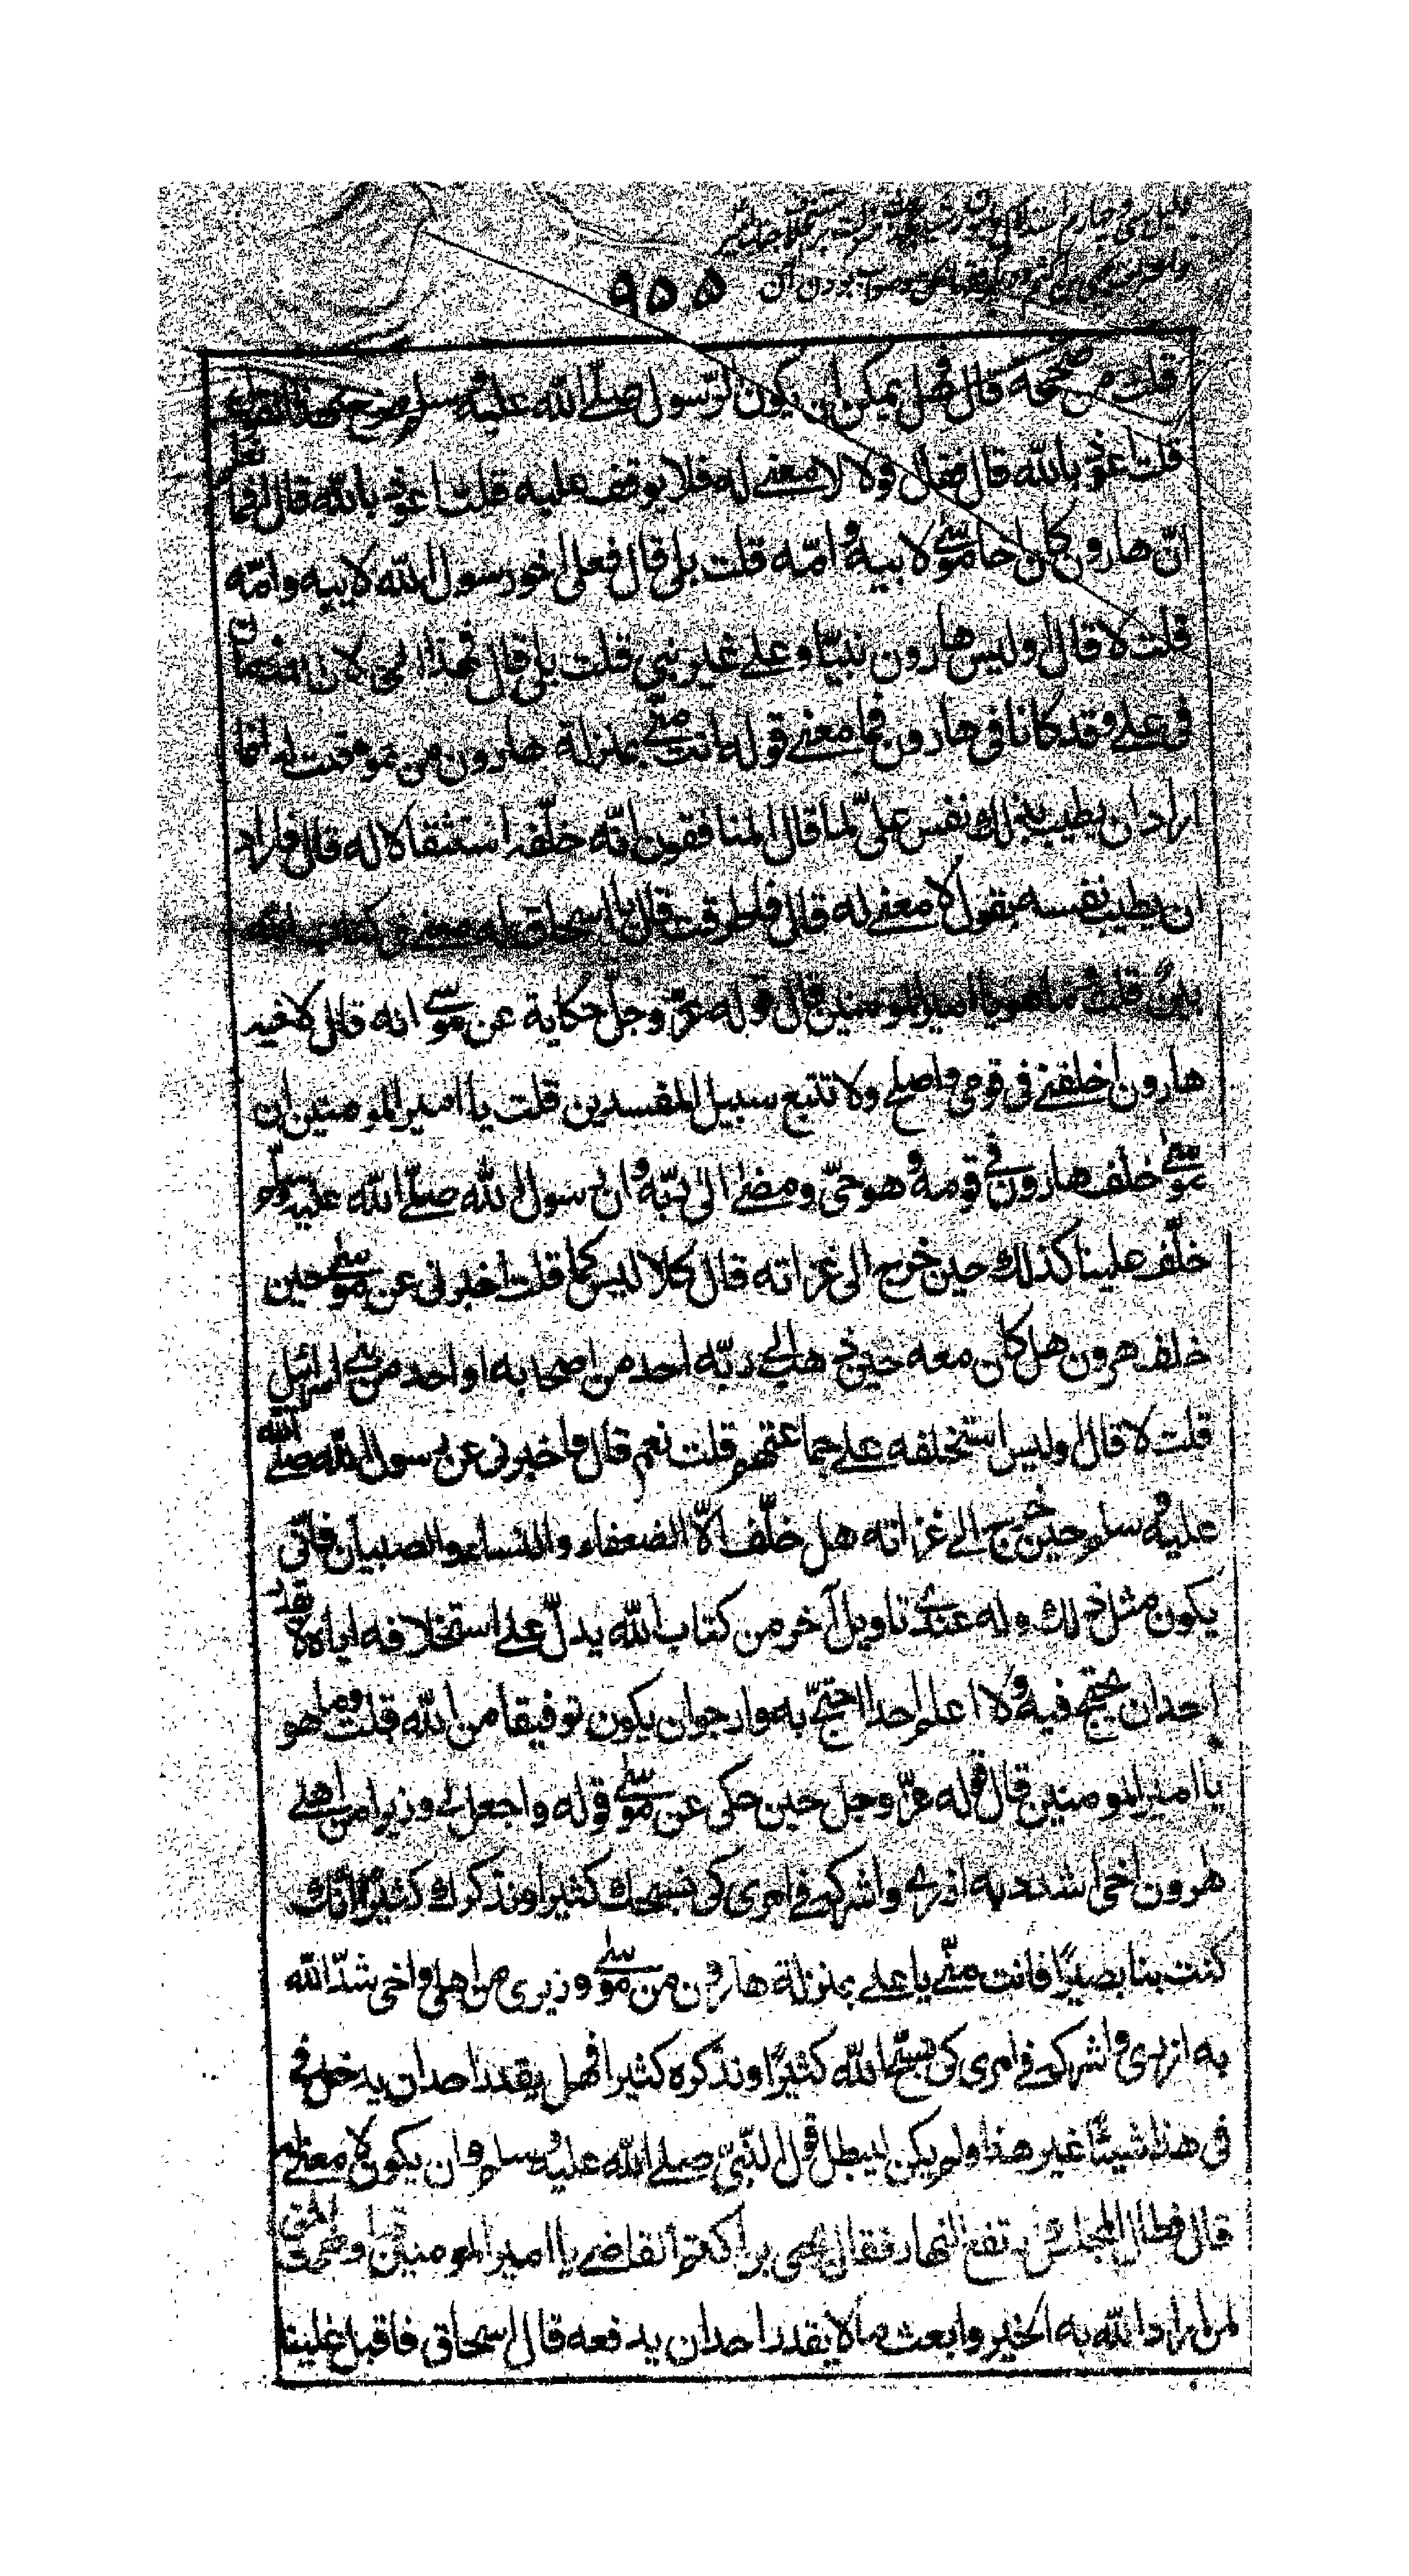 ۹۵۵
قلت من صححه قال فهل يمكن ان يكون الرسول صلى الله عليه وسلم
قلت اعوذ بالله قال فقال قولا لا معنى له فلا يوقف عليه قلت اعوذ بالله قال افما تعلم
ان هارون كان اخا موسى لابيه وامه قلت بلى قال فعلى اخو رسول الله لابيه وامه
قلت لا قال اوليس هارون نبيا وعلى غير نبى قلت بلى قال فهذان الحالان معدومان
فى على وقد كانا فى هارون فما معنى قوله انت منى بمنزلة هارون من موسى قلت له انما
اراد ان يطيب بذلك نفس على لما قال المنافقون انه خلفه استثقالا له قال فاراد
ان يطيب نفسه بقول لا معنى له قال فاطرقت قال يا اسحاق له معنى فى كتاب الله
بين قلت وما هو يا امير المومنين قال قوله عز وجل حكاية عن موسى انه قال لاخيه
هارون اخلفنى فى قومى واصلح ولا تتبع سبيل المفسدين قلت يا امير المومنين ان
موسى خلف هارون فى قومه وهو حى ومضى الى ربه وان رسول الله صلى الله عليه وسلم
خلف عليا كذلك حين خرج الى غزاته قال كلا ليس كما قلت اخبرنى عن موسى حين
خلف هرون هل كان معه حين ذهب الى ربه احد من اصحابه او احد من بنى اسرائيل
قلت لا قال اوليس استخلفه على جماعتهم قلت نعم قال فاخبرنى عن رسول الله صلى الله
عليه وسلم حين خرج الى غزاته هل خلف الا الضعفاء والنساء والصبيان فانى
يكون مثل ذلك وله عندى تاويل آخر من كتاب الله يدل على استخلافه اياه لا يقدر
احد ان يحتج فيه ولا اعلم احدا احتج به وارجو ان يكون توفيقا من الله قلت وما هو
يا امير المومنين قال قوله عز وجل حين حكى عن موسى قوله واجعل لى وزيرا من اهلى
هرون اخى اشدد به ازرى واشركه فى امرى كى نسبحك كثيرا ونذكرك كثيرا انك
كنت بنا بصيرا فانت منى يا على بمنزلة هارون من موسى وزيرى من اهلى واخى شد الله
به ازرى واشركه فى امرى كى نسبح الله كثيرا ونذكره كثيرا فهل يقدر احد ان يدخل فى
فى هذا شيئا غير هذا ولم يكن ليبطل قول النبى صلى الله عليه وسلم وان يكون لا معنى له
قال فطال المجلس وارتفع النهار فقال يحيى بن اكثم القاضى يا امير المومنين قد اوضحت الحق
لمن اراد الله به الخير وابعث ما لا يقدر احد ان يدفعه قال اسحاق فاقبل علينا